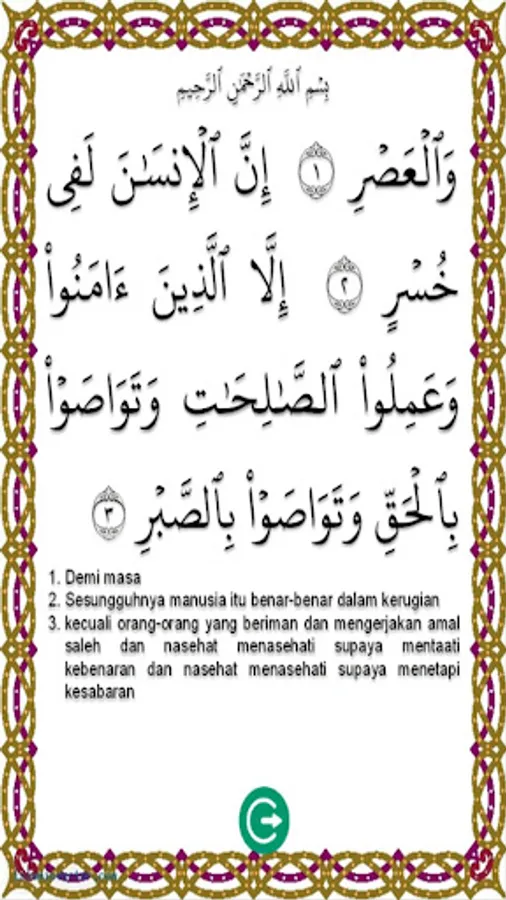 بِسْمِ ٱللَّهِ ٱلرَّحْمَٰنِ ٱلرَّحِيمِ
وَٱلْعَصْرِ ١ إِنَّ ٱلْإِنسَٰنَ لَفِى
خُسْرٍ ٢ إِلَّا ٱلَّذِينَ ءَامَنُوا۟
وَعَمِلُوا۟ ٱلصَّٰلِحَٰتِ وَتَوَاصَوْا۟
بِٱلْحَقِّ وَتَوَاصَوْا۟ بِٱلصَّبْرِ ٣
1. Demi masa
2. Sesungguhnya manusia itu benar-benar dalam kerugian
3. kecuali orang-orang yang beriman dan mengerjakan amal
saleh dan nasehat menasehati supaya mentaati
kebenaran dan nasehat menasehati supaya menetapi
kesabaran